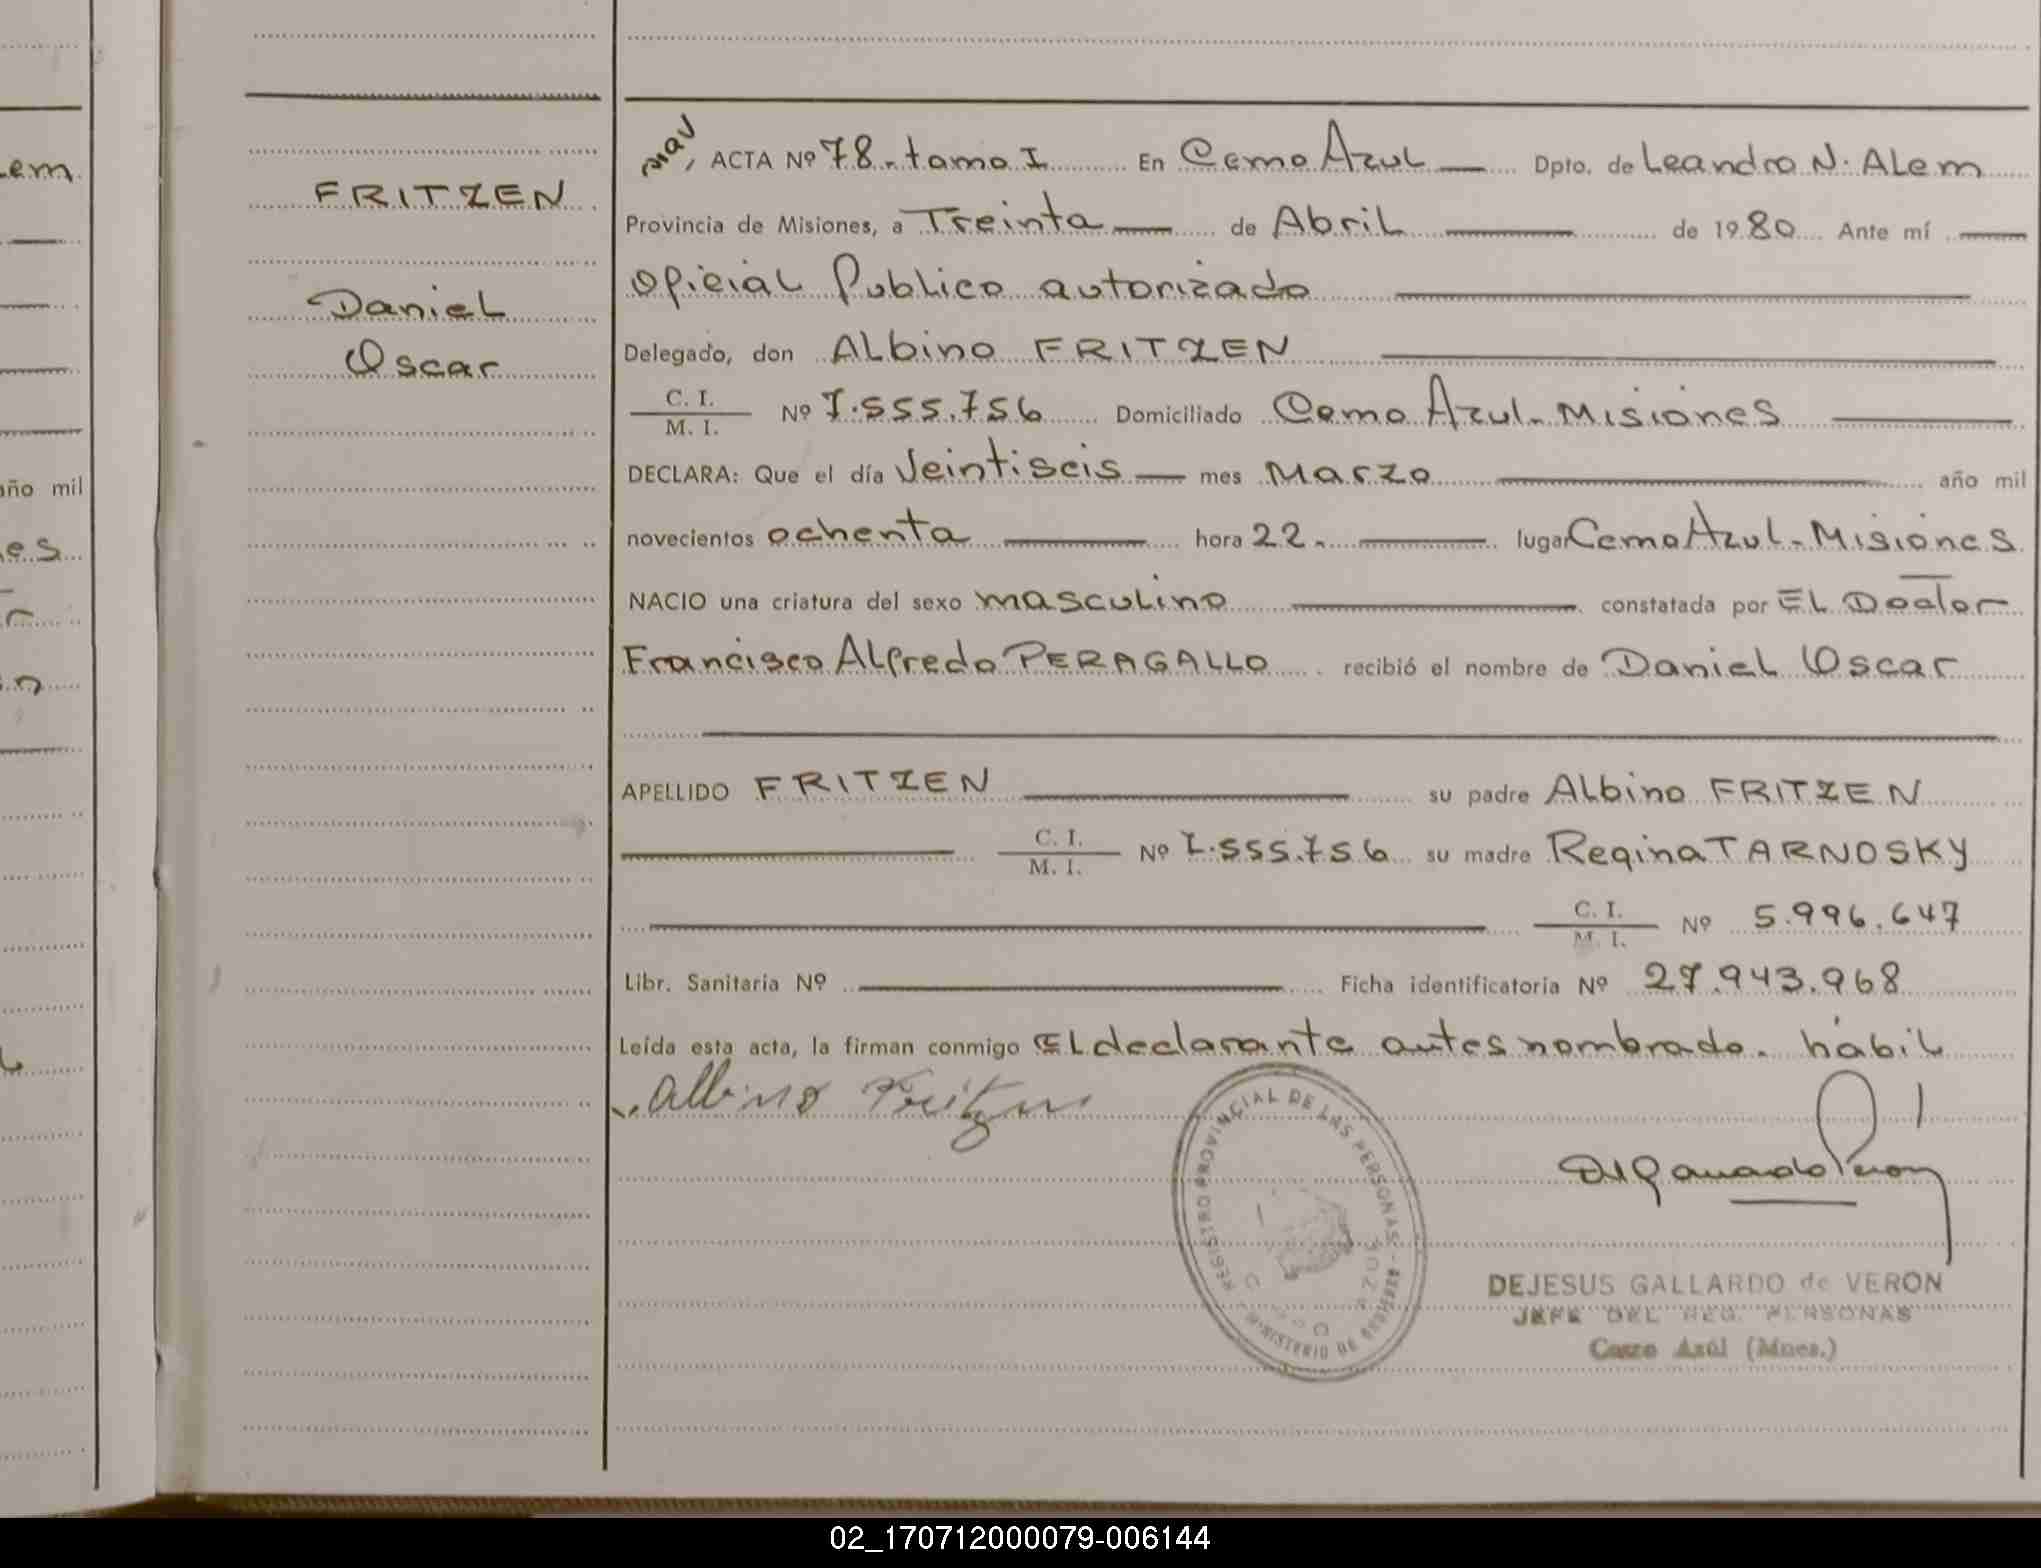 FRITZEN
Daniel
Oscar
ACTA Nº 78.. tomo I En Cerro Azul Dpto. de Leandro N. Alem
Provincia de Misiones, a Treinta de Abril de 1980 Ante mí
Oficial Publico autorizado
Delegado, don Albino FRITZEN
C. I.
M. I. Nº 7.555.756 Domiciliado Cerro Azul - Misiones
DECLARA: Que el día Veintiseis mes Marzo año mil
novecientos ochenta hora 22. lugar Cerro Azul - Misiones
NACIO una criatura del sexo masculino constatada por El Doctor
Francisco Alfredo PERAGALLO recibió el nombre de Daniel Oscar
APELLIDO FRITZEN su padre Albino FRITZEN
C. I.
M. I. Nº 7.555.756 su madre Regina TARNOSKY
C. I.
M. I. Nº 5.996.647
Libr. Sanitaria Nº Ficha identificatoria Nº 27.943.968
Leída esta acta, la firman conmigo El declarante antes nombrado. hábil
Albino Fritzen
REGISTRO PROVINCIAL DE LAS PERSONAS - MINISTERIO DE GOBIERNO
DEJESUS GALLARDO de VERON
JEFE DEL REG. PERSONAS
Cerro Azúl (Mnes.)
em
año mil
es
r
n
02_170712000079-006144